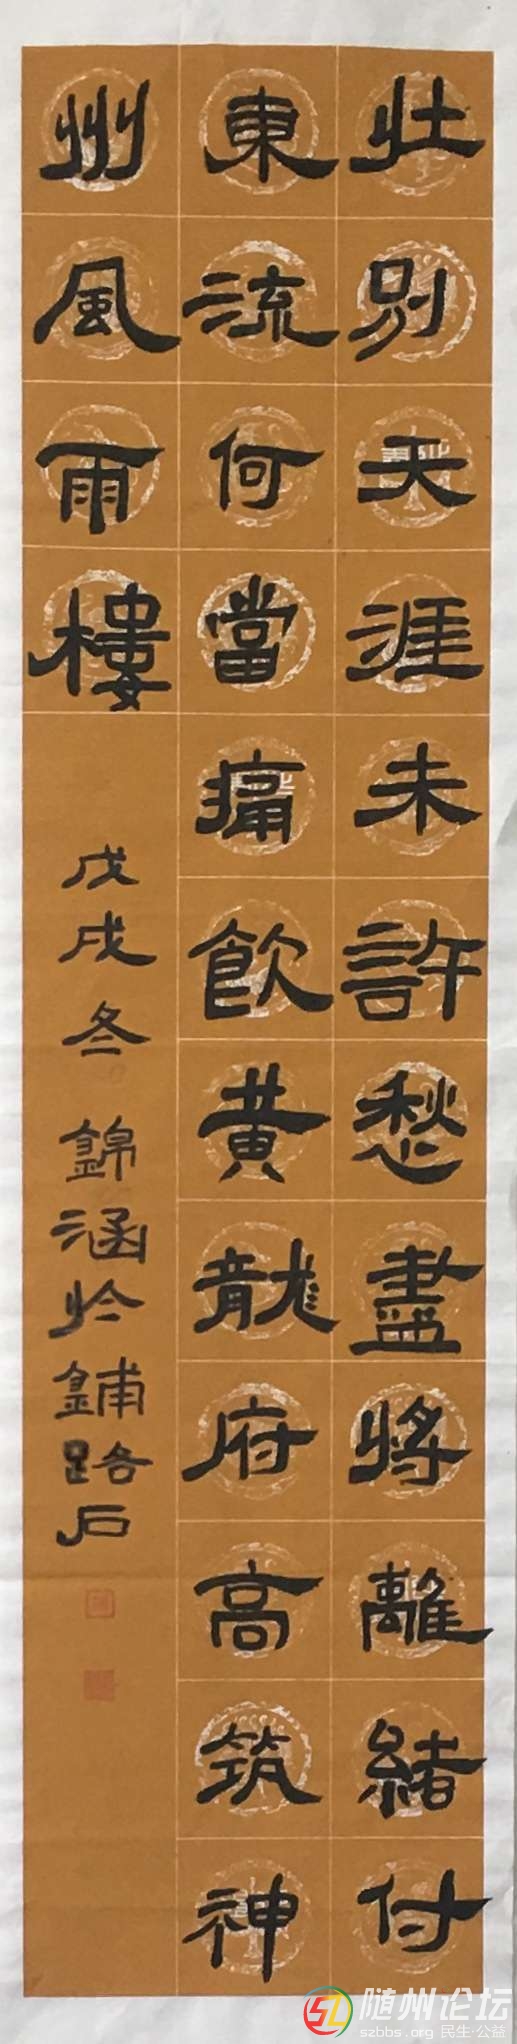 壯別天涯未許愁盡將離緒付
東流何當痛飲黃龍府高筑神
州風雨樓
戊戌冬 錦涵於鋪路石
随州论坛
szbbs.org 民生·公益